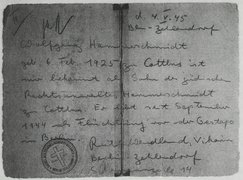 d. 4. V. 45
Bln - Zehlendorf
Wolfgang Hammerschmidt
geb. 6. Feb. 1925 zu Cottbus ist
mir bekannt als Sohn des jüdischen
Rechtsanwalts Hammerschmidt
zu Cottbus. Er lebt seit September
1944 als Flüchtling vor der Gestapo
in Berlin.
Vikarin
Berlin Zehlendorf
14